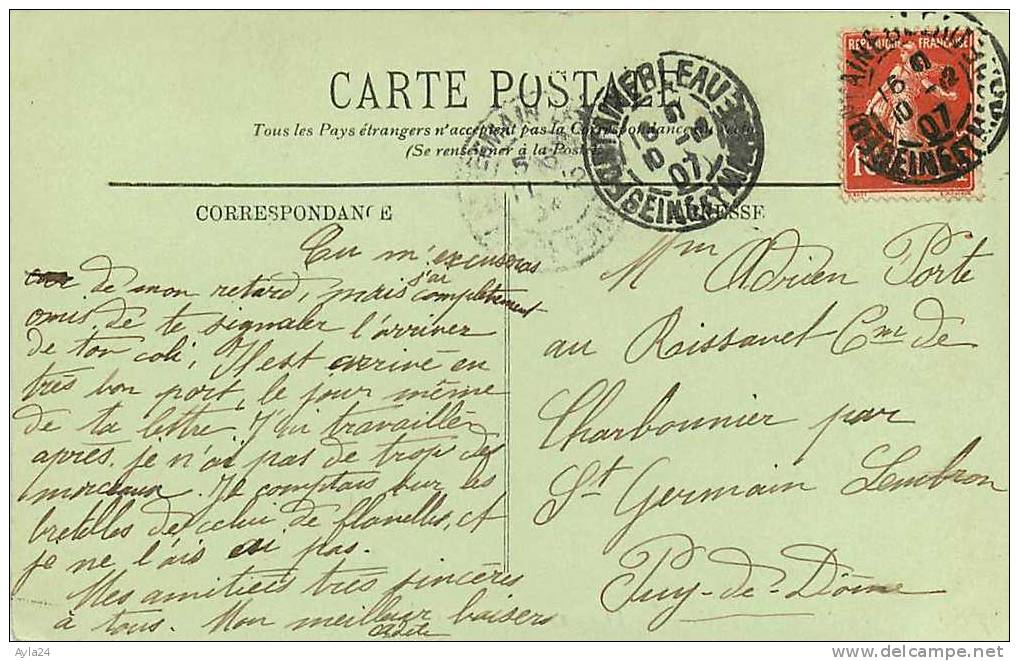 CARTE POSTALE
Tous les Pays étrangers n'acceptent pas la Correspondance au recto
(Se renseigner à la Poste)
REPUBLIQUE FRANÇAISE
FONTAINEBLEAU
16
10 - 12
07
SEINE ET M
CORRESPONDANCE
ADRESSE
Tu m'excuseras
de mon retard, mais j'ai complètement
omis de te signaler l'arriver
de ton coli, Il est arrivé en
très bon port, le jour même
de ta lettre. J'ai travailler
après. je n'ai pas de trop de
morceaux. Je comptais sur les
bretelles de celui de flanelles, et
je ne l'ais ai pas.
Mes amitiées très sincères
à tous. Mon meilleur baisers
Mme Adrien Porte
au Rissavet Cne de
Charbonnier par
St Germain Lembron
Puy-de-Dôme
Ayla24
delcampe.net